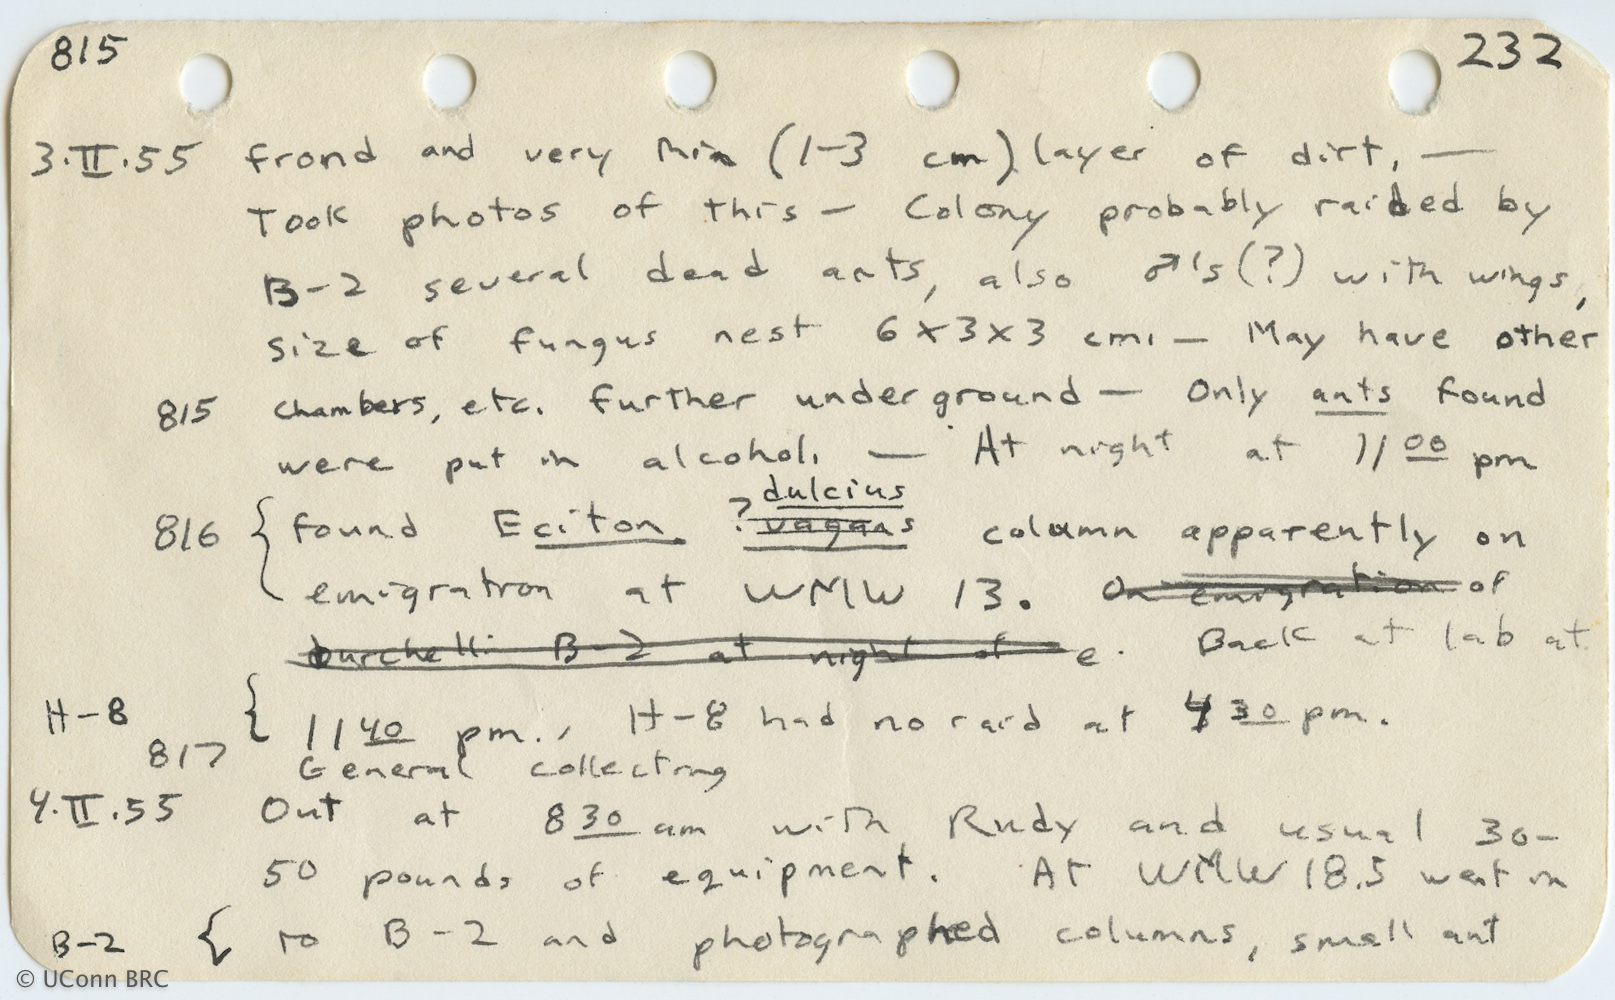 815 232
3·II·55 frond and very thin (1-3 cm) layer of dirt, —
Took photos of this — Colony probably raided by
B-2 several dead ants, also ♂'s (?) with wings,
size of fungus nest 6 x 3 x 3 cm. — May have other
815 chambers, etc. further underground — Only ants found
were put in alcohol. — At night at 11 00 pm
dulcius
816 { found Eciton ? vagans column apparently on
emigration at WMW 13. On emigration of
burchelli B-2 at night of e. Back at lab at
H-8 { 11 40 pm., H-8 had no raid at 4 30 pm.
817 General collecting
4·II·55 Out at 8 30 am with Rudy and usual 30-
50 pounds of equipment. At WMW 18.5 went in
B-2 { to B-2 and photographed columns, small ant
© UConn BRC